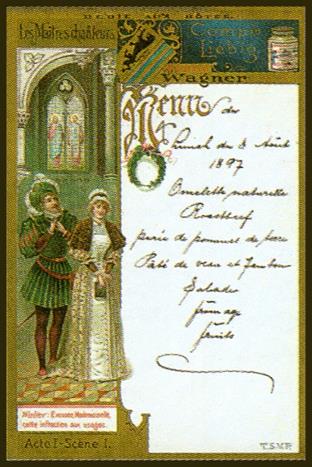 DÉDIÉ AUX HÔTES.
Les Maîtres chanteurs
Compie
Liebig
Wagner
Menu du
Lunch du 8 Août
1897
Omelette naturelle
Roastbeef
purée de pommes de terre
Pâté de veau et Jambon
Salade
fromage
fruits
Walter: Excusez, Mademoiselle,
cette infraction aux usages.
Acte I - Scène I.
T.S.V.P.